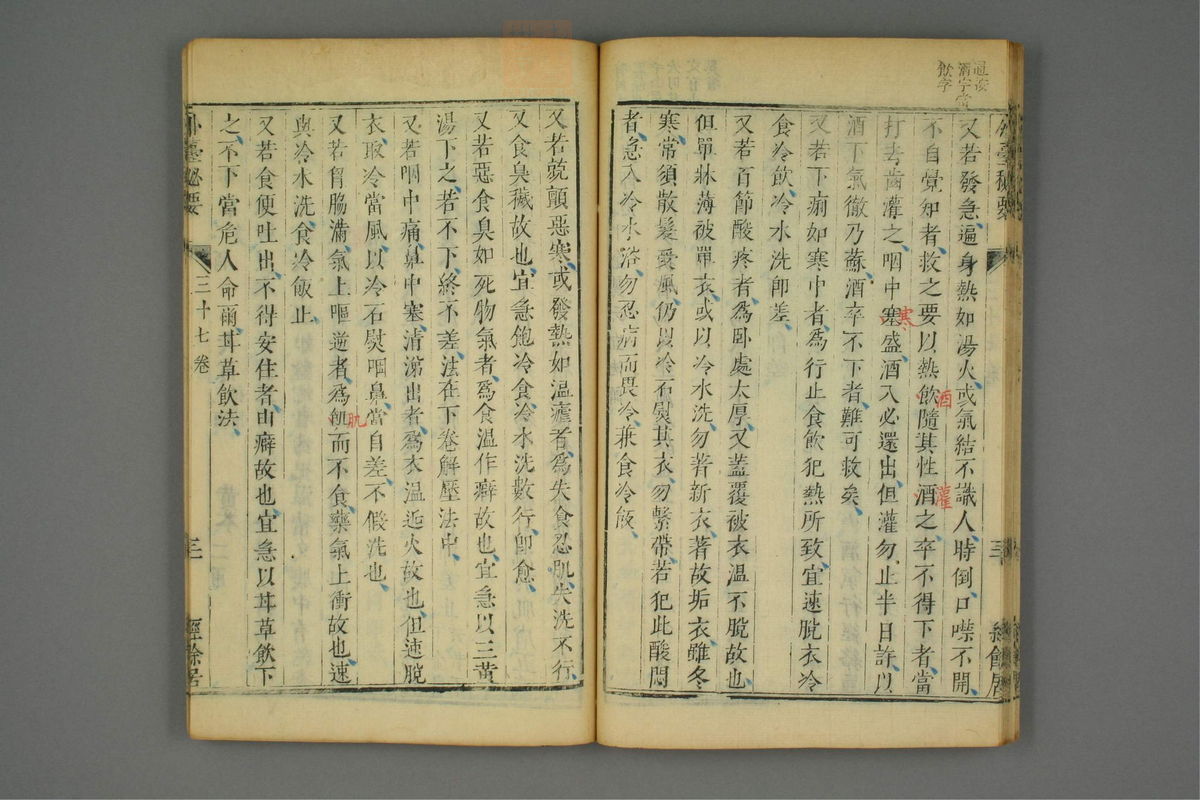 酒字當
飲字
外臺秘要 三 經餘居
又若發急、遍身熱如湯火、或氣結不識人、時倒、口噤不開、
不自覺知者、救之要以熱飲隨其性酒之、卒不得下者、當
酒
灌
打去齒灌之、咽中塞盛、酒入必還出、但灌勿止、半日許、以
寒
酒下氣徹乃蘇、酒卒不下者、難可救矣、
又若下痢如寒中者、爲行止食飲犯熱所致、宜速脫衣冷
食冷飲、冷水洗即差、
又若百節酸疼者、爲臥處太厚、又蓋覆被衣溫不脫故也、
但單牀薄被單衣、或以冷水洗、勿著新衣、著故垢衣、雖冬
寒、常須散髮受風、仍以冷石熨其衣、勿繫帶、若犯此酸悶
者、急入冷水浴、勿忍病而畏冷、兼食冷飯、
又若兢顫惡寒、或發熱如溫瘧者、爲失食忍肌、失洗不行、
又食臭穢故也、宜急飽冷食、冷水洗數行、即愈、
又若惡食臭如死物氣者、爲食溫作癖故也、宜急以三黃
湯下之、若不下、終不差、法在下卷解壓法中、
又若咽中痛、鼻中塞、清涕出者、爲衣溫近火故也、但速脫
衣、取冷當風、以冷石熨咽鼻、當自差、不假洗也、
又若胷脇滿、氣上嘔逆者、爲飢而不食、藥氣上衝故也、速
肌
與冷水洗、食冷飯止、
又若食便吐出、不得安住者、由癖故也、宜急以甘草飲下
之、不下、當危人命爾、甘草飲法、
外臺秘要 三十七卷 三 經餘居